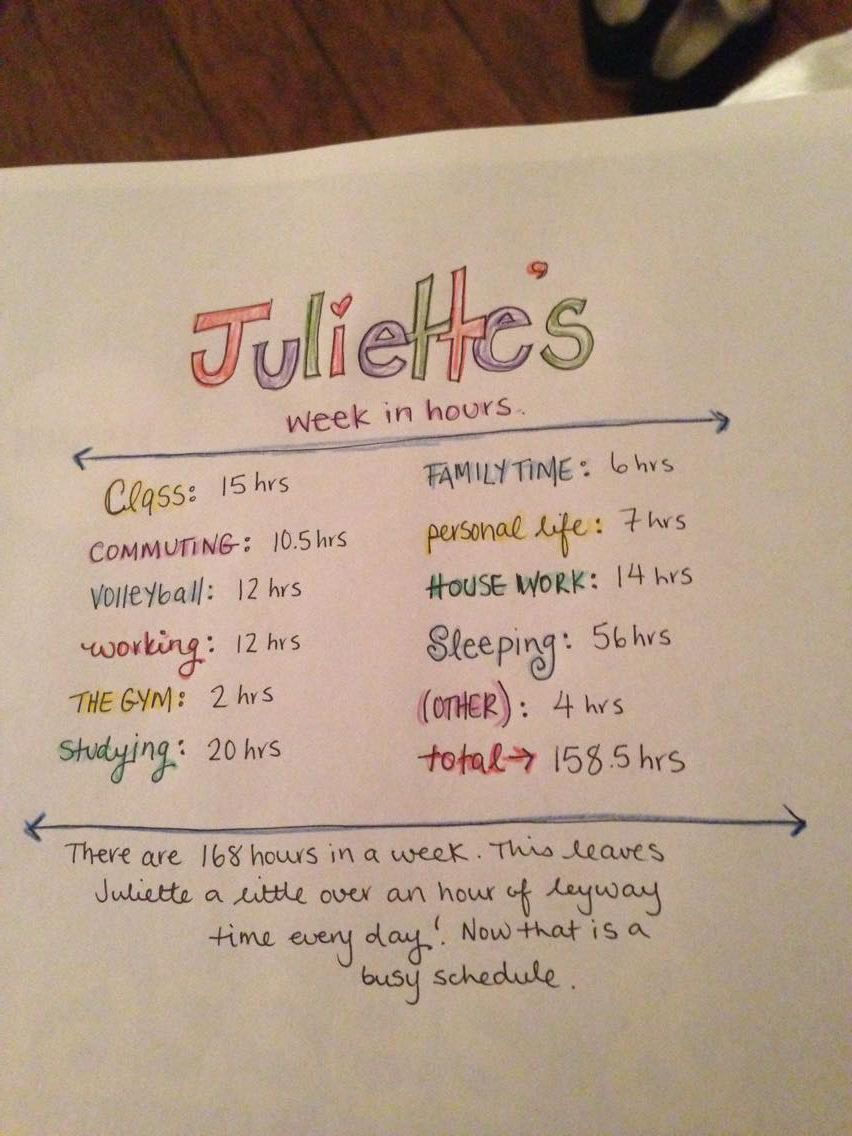 Juliette's
week in hours.
Class: 15 hrs
COMMUTING: 10.5 hrs
Volleyball: 12 hrs
working: 12 hrs
THE GYM: 2 hrs
studying: 20 hrs
FAMILY TIME: 6 hrs
personal life: 7 hrs
HOUSE WORK: 14 hrs
Sleeping: 56 hrs
(OTHER): 4 hrs
total→ 158.5 hrs
There are 168 hours in a week. This leaves
Juliette a little over an hour of leyway
time every day! Now that is a
busy schedule.